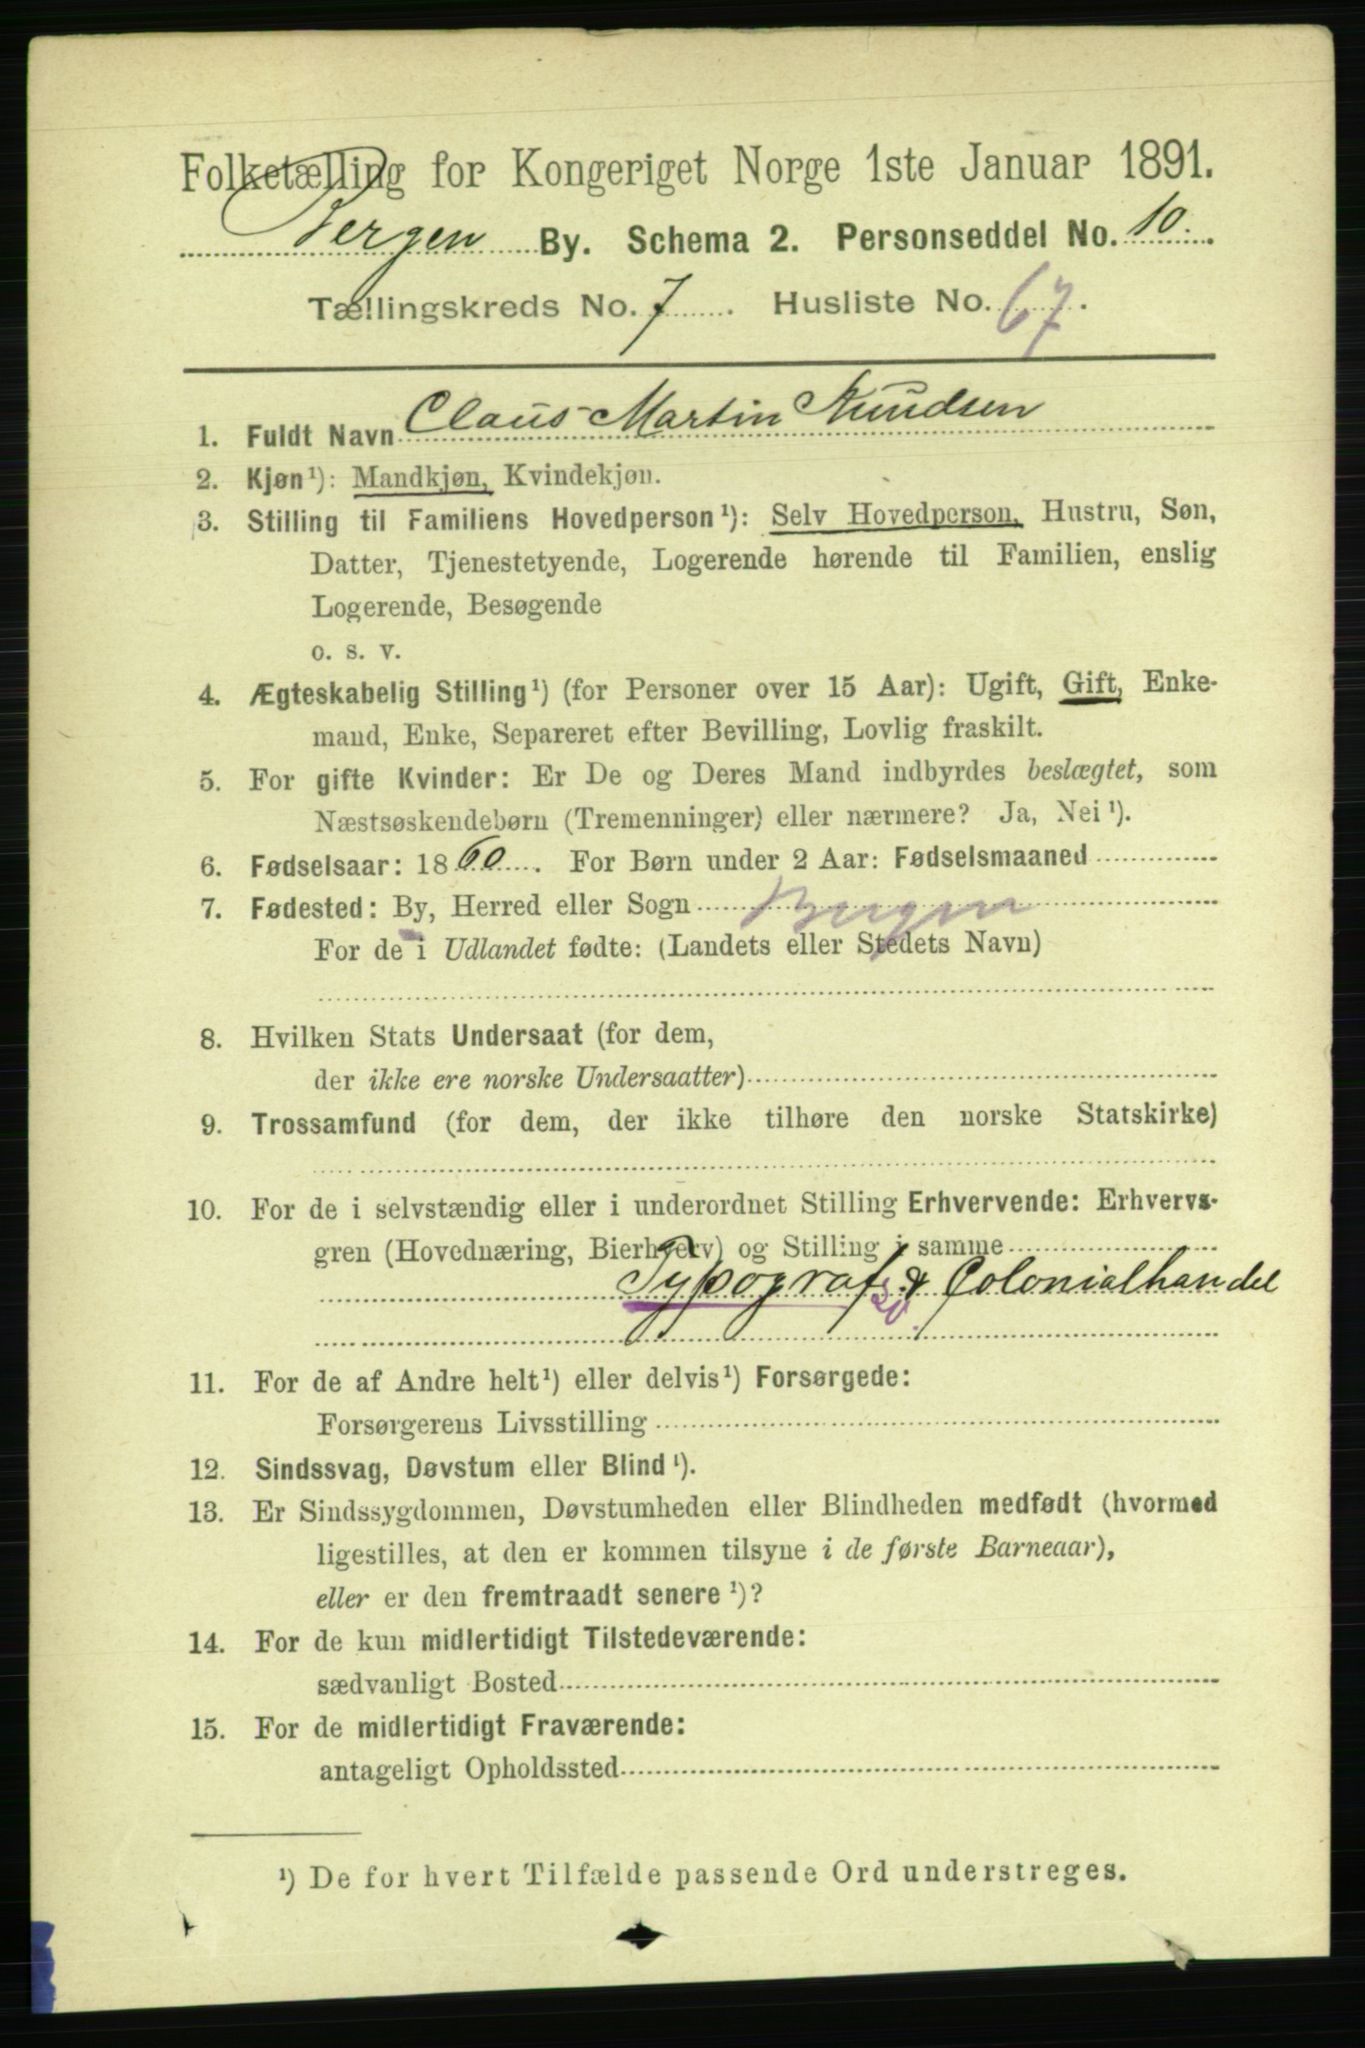 Folketælling for Kongeriget Norge 1ste Januar 1891.
Bergen By. Schema 2. Personseddel No. 10.
Tællingskreds No. 7. Husliste No. 67.
1. Fuldt Navn Claus Martin Knudsen
2. Kjøn¹): Mandkjøn, Kvindekjøn.
3. Stilling til Familiens Hovedperson¹): Selv Hovedperson, Hustru, Søn,
Datter, Tjenestetyende, Logerende hørende til Familien, enslig
Logerende, Besøgende
o. s. v.
4. Ægteskabelig Stilling¹) (for Personer over 15 Aar): Ugift, Gift, Enke-
mand, Enke, Separeret efter Bevilling, Lovlig fraskilt.
5. For gifte Kvinder: Er De og Deres Mand indbyrdes beslægtet, som
Næstsøskendebørn (Tremenninger) eller nærmere? Ja, Nei¹).
6. Fødselsaar: 1860. For Børn under 2 Aar: Fødselsmaaned
7. Fødested: By, Herred eller Sogn Bergen
For de i Udlandet fødte: (Landets eller Stedets Navn)
8. Hvilken Stats Undersaat (for dem,
der ikke ere norske Undersaatter)
9. Trossamfund (for dem, der ikke tilhøre den norske Statskirke)
10. For de i selvstændig eller i underordnet Stilling Erhvervende: Erhvervs-
gren (Hovednæring, Bierhverv) og Stilling i samme
Typograf & Colonialhandel
20.
11. For de af Andre helt¹) eller delvis¹) Forsørgede:
Forsørgerens Livsstilling
12. Sindssvag, Døvstum eller Blind¹).
13. Er Sindssygdommen, Døvstumheden eller Blindheden medfødt (hvormed
ligestilles, at den er kommen tilsyne i de første Barneaar),
eller er den fremtraadt senere¹)?
14. For de kun midlertidigt Tilstedeværende:
sædvanligt Bosted
15. For de midlertidigt Fraværende:
antageligt Opholdssted
¹) De for hvert Tilfælde passende Ord understreges.